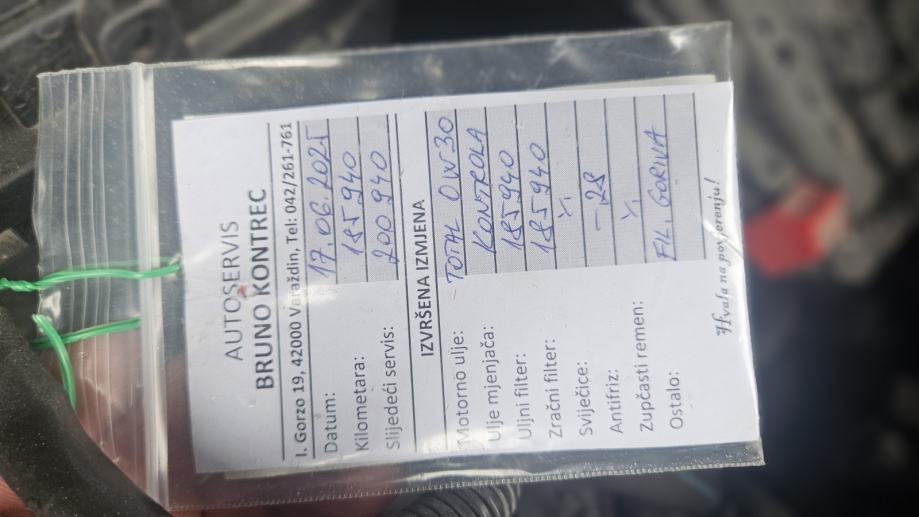 AUTOSERVIS
BRUNO KONTREC
I. Gorzo 19, 42000 Varaždin, Tel: 042/261-761
Datum: 17.06.2025
Kilometara: 185940
Slijedeći servis: 200940
IZVRŠENA IZMJENA
Motorno ulje: TOTAL 0W30
Ulje mjenjača: KONTROLA
Uljni filter: 185940
Zračni filter: 185940
Svijećice:
Antifriz: -28
Zupčasti remen:
Ostalo: FIL. GORIVA
Hvala na povjerenju!